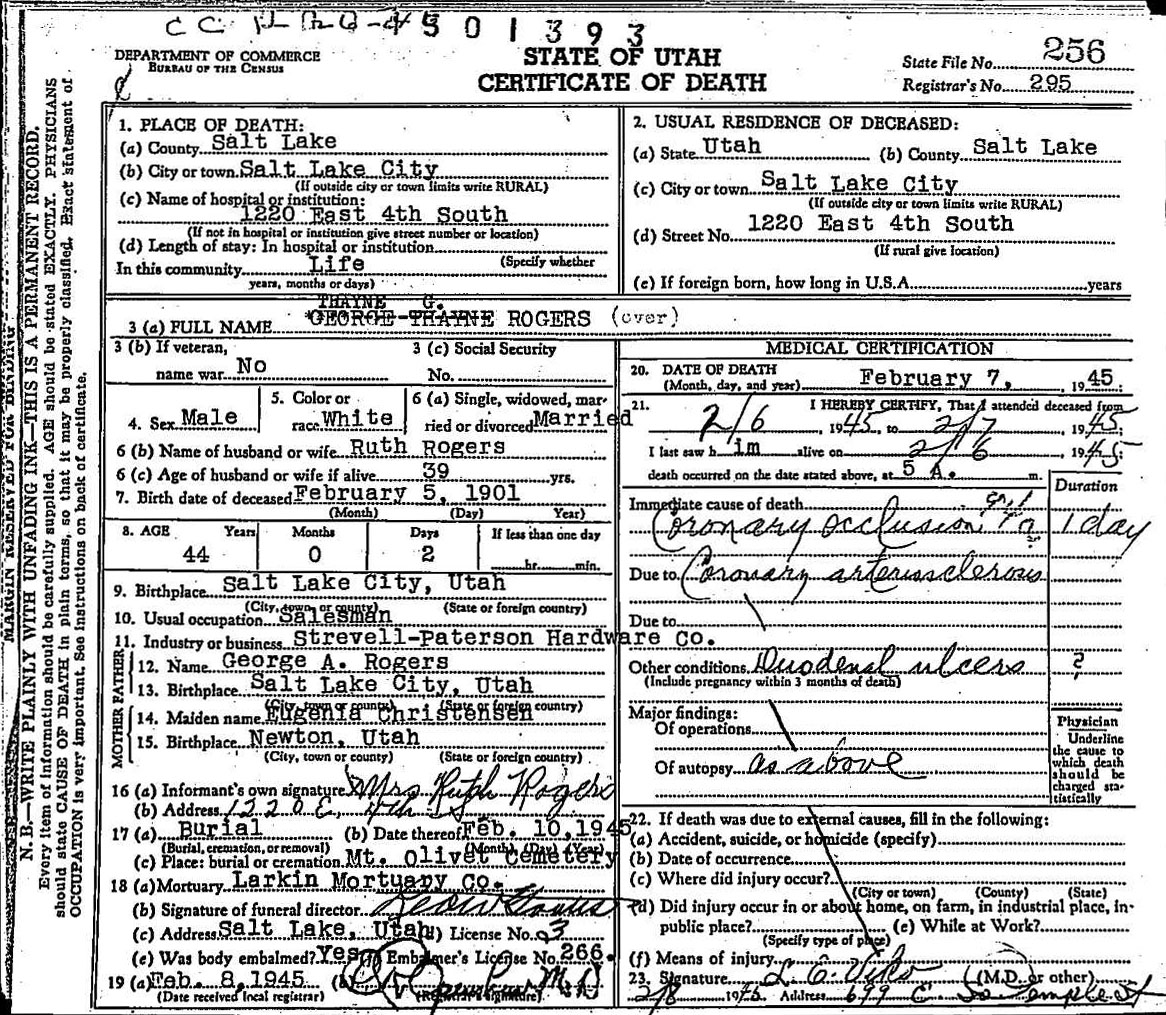 4501393
DEPARTMENT OF COMMERCE
BUREAU OF THE CENSUS
STATE OF UTAH
CERTIFICATE OF DEATH
State File No. 256
Registrar's No. 295
MARGIN RESERVED FOR BINDING
N. B.—WRITE PLAINLY WITH UNFADING INK—THIS IS A PERMANENT RECORD.
Every item of information should be carefully supplied. AGE should be stated EXACTLY. PHYSICIANS
should state CAUSE OF DEATH in plain terms, so that it may be properly classified. Exact statement of
OCCUPATION is very important. See instructions on back of certificate.
1. PLACE OF DEATH:
(a) County Salt Lake
(b) City or town Salt Lake City
(If outside city or town limits write RURAL)
(c) Name of hospital or institution:
1220 East 4th South
(If not in hospital or institution give street number or location)
(d) Length of stay: In hospital or institution
(Specify whether
In this community Life
years, months or days)
2. USUAL RESIDENCE OF DECEASED:
(a) State Utah (b) County Salt Lake
(c) City or town Salt Lake City
(If outside city or town limits write RURAL)
(d) Street No. 1220 East 4th South
(If rural give location)
(e) If foreign born, how long in U.S.A. years
THAYNE G.
3 (a) FULL NAME GEORGE THAYNE ROGERS (over)
3 (b) If veteran,
name war No
3 (c) Social Security
No.
4. Sex Male
5. Color or
race White
6 (a) Single, widowed, mar-
ried or divorced Married
6 (b) Name of husband or wife Ruth Rogers
6 (c) Age of husband or wife if alive 39 yrs.
7. Birth date of deceased February 5, 1901
(Month) (Day) Year)
8. AGE Years Months Days If less than one day
44 0 2 hr. min.
9. Birthplace Salt Lake City, Utah
(City, town or county) (State or foreign country)
10. Usual occupation Salesman
11. Industry or business Strevell-Paterson Hardware Co.
FATHER
12. Name George A. Rogers
13. Birthplace Salt Lake City, Utah
(City, town or county) (State or foreign country)
MOTHER
14. Maiden name Eugenia Christensen
15. Birthplace Newton, Utah
(City, town or county) (State or foreign country)
16 (a) Informant's own signature Mrs Ruth Rogers
(b) Address 1220 E. 4th S
17 (a) Burial (b) Date thereof Feb. 10, 1945
(Burial, cremation, or removal) (Month) (Day) (Year)
(c) Place: burial or cremation Mt. Olivet Cemetery
18 (a) Mortuary Larkin Mortuary Co.
(b) Signature of funeral director
(c) Address Salt Lake, Utah (d) License No. 23
(e) Was body embalmed? Yes (f) Embalmer's License No. 266.
19 (a) Feb. 8, 1945 (b) M.D.
(Date received local registrar) (Registrar's signature)
MEDICAL CERTIFICATION
20. DATE OF DEATH
(Month, day, and year) February 7, 1945;
21. I HEREBY CERTIFY, That I attended deceased from
2/6, 1945, to 2/7, 1945;
I last saw him alive on 2/6, 1945;
death occurred on the date stated above, at 5 A. m.
Duration
Immediate cause of death
Coronary occlusion 1 day
Due to Coronary arteriosclerosis
Due to
Other conditions Duodenal ulcers ?
(Include pregnancy within 3 months of death)
Major findings:
Of operations
Of autopsy as above
Physician
Underline
the cause to
which death
should be
charged sta-
tistically
22. If death was due to external causes, fill in the following:
(a) Accident, suicide, or homicide (specify)
(b) Date of occurrence
(c) Where did injury occur?
(City or town) (County) (State)
(d) Did injury occur in or about home, on farm, in industrial place, in
public place? (e) While at Work?
(Specify type of place)
(f) Means of injury
23. Signature L. E. Viko (M.D. or other)
2/8 1945 Address 699 E. So Temple St